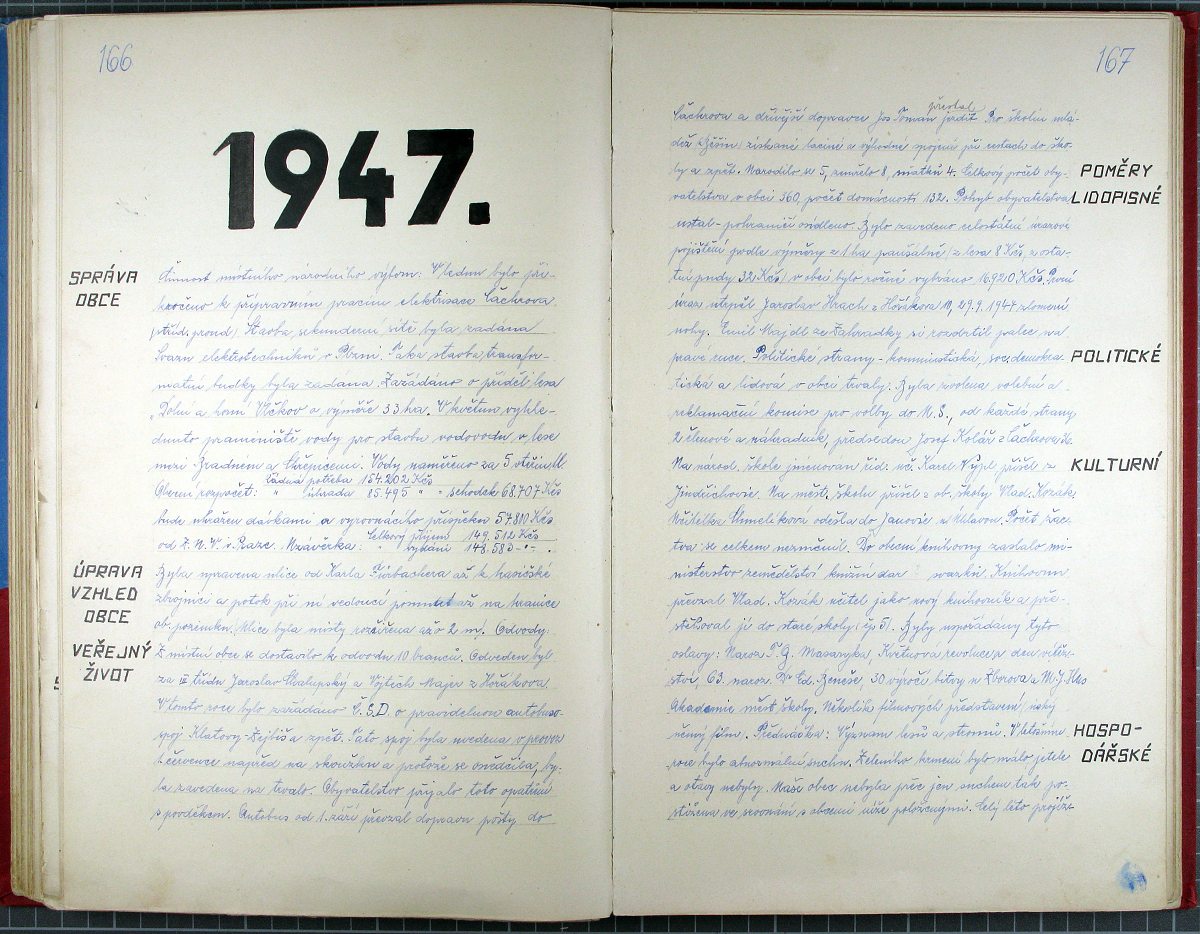 166
1947.
SPRÁVA
OBCE
Činnost místního národního výboru. V lednu bylo při-
kročeno k přípravným pracím elektrisace Čachrova
(stříd. proud). Stavba sekunderní sítě byla zadána
Svazu elektrotechniků v Plzni. Také stavba transfor-
mační budky byla zadána. Zažádáno o příděl lesa
„Dolní a horní Vlčkov o výměře 33 ha. V květnu vyhlé-
dnuto prameniště vody pro stavbu vodovodu v lese
mezi Zradném a Chřepicemi. Vody naměřeno za 5 vteřin
Obecní rozpočet: řádná potřeba 154.202 Kčs
" úhrada 85.495 " - schodek 68.707 Kčs
bude uhrazen dávkami a vyrovnacího příspěvku 57.810 Kčs
od Z.N.V. v Praze. Uzávěrka: Celkový příjem 149.512 Kčs
" vydání 148.580 " - .
ÚPRAVA
VZHLED
OBCE
Byla upravena ulice od Karla Fürbachera až k hasičské
zbrojnici a potok při ní vedoucí posunut až na hranice
ob. pozemku. Ulice byla místy rozšířena až o 2 m. Odvody:
VEŘEJNÝ
ŽIVOT
Z místní obce se dostavilo k odvodu 10 branců. Odveden byl
za tř. třídu Jaroslav Chalupský a Vojtěch Majer z Hořákova.
V tomto roce bylo zažádáno Č.S.D. o pravidelnou autobuso-
spoj Klatovy-Dejšina a zpět. Tato spoj byla uvedena v provoz
1. července napřed na zkoušku a protože se osvědčila, by-
la zavedena na trvalo. Obyvatelstvo přijalo toto opatření
s povděkem. Autobus od 1. září převzal dopravu pošty do
167
Čachrova a dřívější dopravce Jos. Toman přestal jezdit. Pro školní mlá-
dež z Běšin získané laciné a výhodné spojení při cestách do ško-
ly a zpět. Narodilo se 5, zemřelo 8, sňatků 4. Celkový počet oby-
POMĚRY
LIDOPISNÉ
vatelstva v obci 360, počet domácností 132. Pohyb obyvatelstva
ustal - pohraničí osídleno. Bylo zavedeno celostátní úrazové
pojištění podle výměry z 1 ha paušálně (z lesa 8 Kčs, z osta-
tní půdy 32 Kčs) v obci bylo ročně vybráno 16.920 Kčs. První
úraz utrpěl Jaroslav Hrach z Hořákova 29.9.1947 zlomení
nohy. Emil Majdl ze Zahrádky si rozdrtil palec na
pravé ruce. Politické strany - komunistická, soc. demokra-
POLITICKÉ
tická a lidová v obci trvaly. Byla zvolena volební a
reklamační komise pro volby do N.S., od každé strany
2 členové a náhradník, předsedou Josef Kolář z Čachrova
Na národ. škole jmenován říd. uč. Karel Vypl, přišel z
KULTURNÍ
Jindřichovic. Na měšť. školu přišel z ob. školy Vlad. Kozák.
Učitelka Chmelíková odešla do Janovic n/Úhlavou. Počet žac-
tva se celkem nezměnil. Do obecní knihovny zaslalo mi-
nisterstvo zemědělství knižní dar svazků. Knihovnu
převzal Vlad. Kozák učitel jako nový knihovník a pře-
stěhoval ji do staré školy čp 51. Byly uspořádány tyto
oslavy: Naroz. T.G. Masaryka, Květnová revoluce a den vítěz-
ství, 63. naroz. Dr Ed. Beneše, 30 výročí bitvy u Zborova a M.J. Hus
Akademie měšť. školy. Několik filmových představení úzký
němý film. Přednáška: Význam lesů a stromů. V letošním
HOSPO-
DÁŘSKÉ
roce bylo abnormální sucho. Zeleného krmení bylo málo, jetele
a otavy nebyly. Naše obec nebyla přec jen suchem tak po-
stižena ve srovnání s obcemi níže položenými. Celý léto projíž-